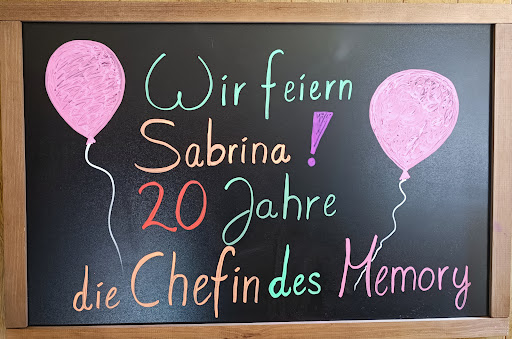 Wir feiern
Sabrina!
20 Jahre
die Chefin des Memory